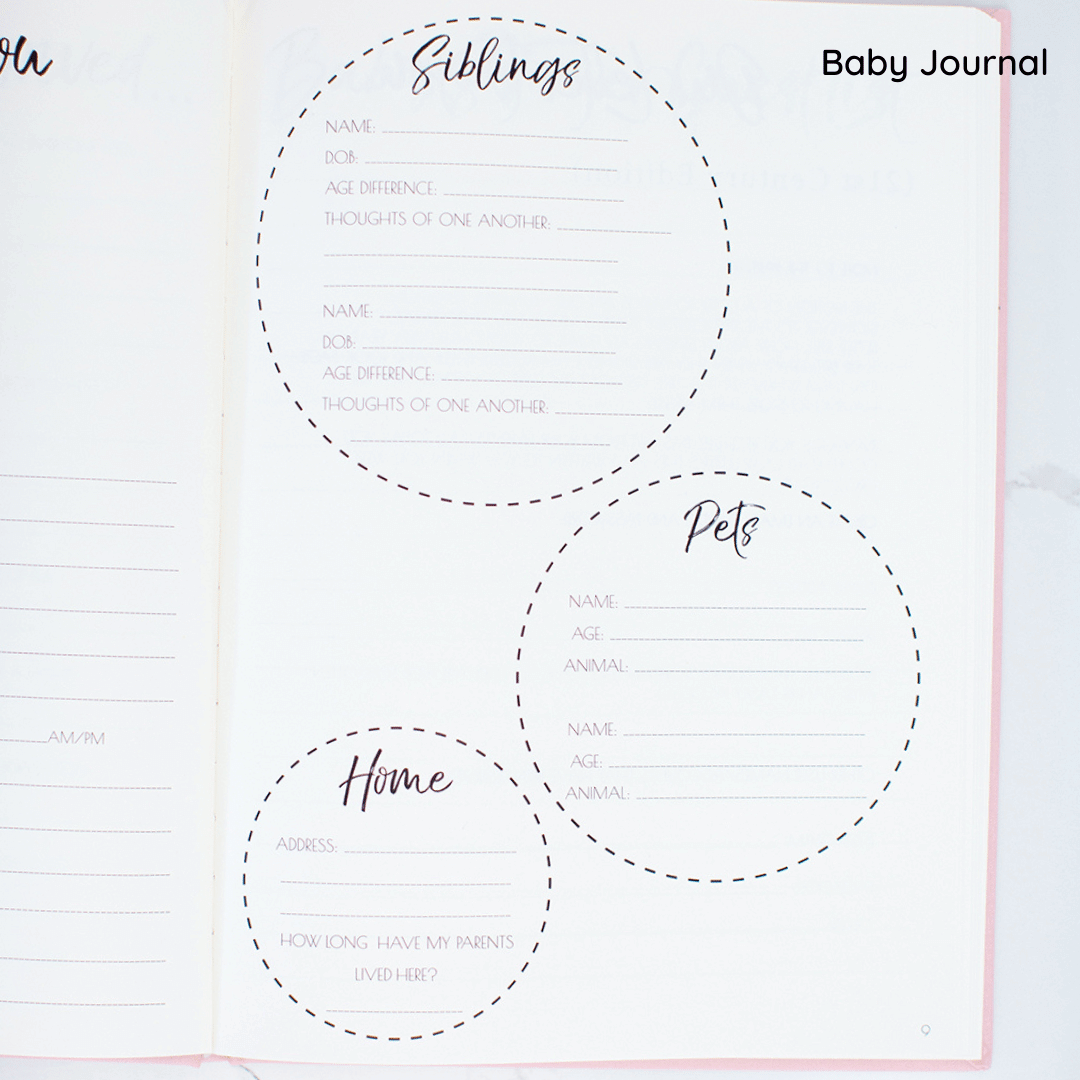 Baby Journal
Siblings
NAME:
D.O.B:
AGE DIFFERENCE:
THOUGHTS OF ONE ANOTHER:
NAME:
D.O.B:
AGE DIFFERENCE:
THOUGHTS OF ONE ANOTHER:
Pets
NAME:
AGE:
ANIMAL:
NAME:
AGE:
ANIMAL:
Home
ADDRESS:
HOW LONG HAVE MY PARENTS
LIVED HERE?
AM/PM
9